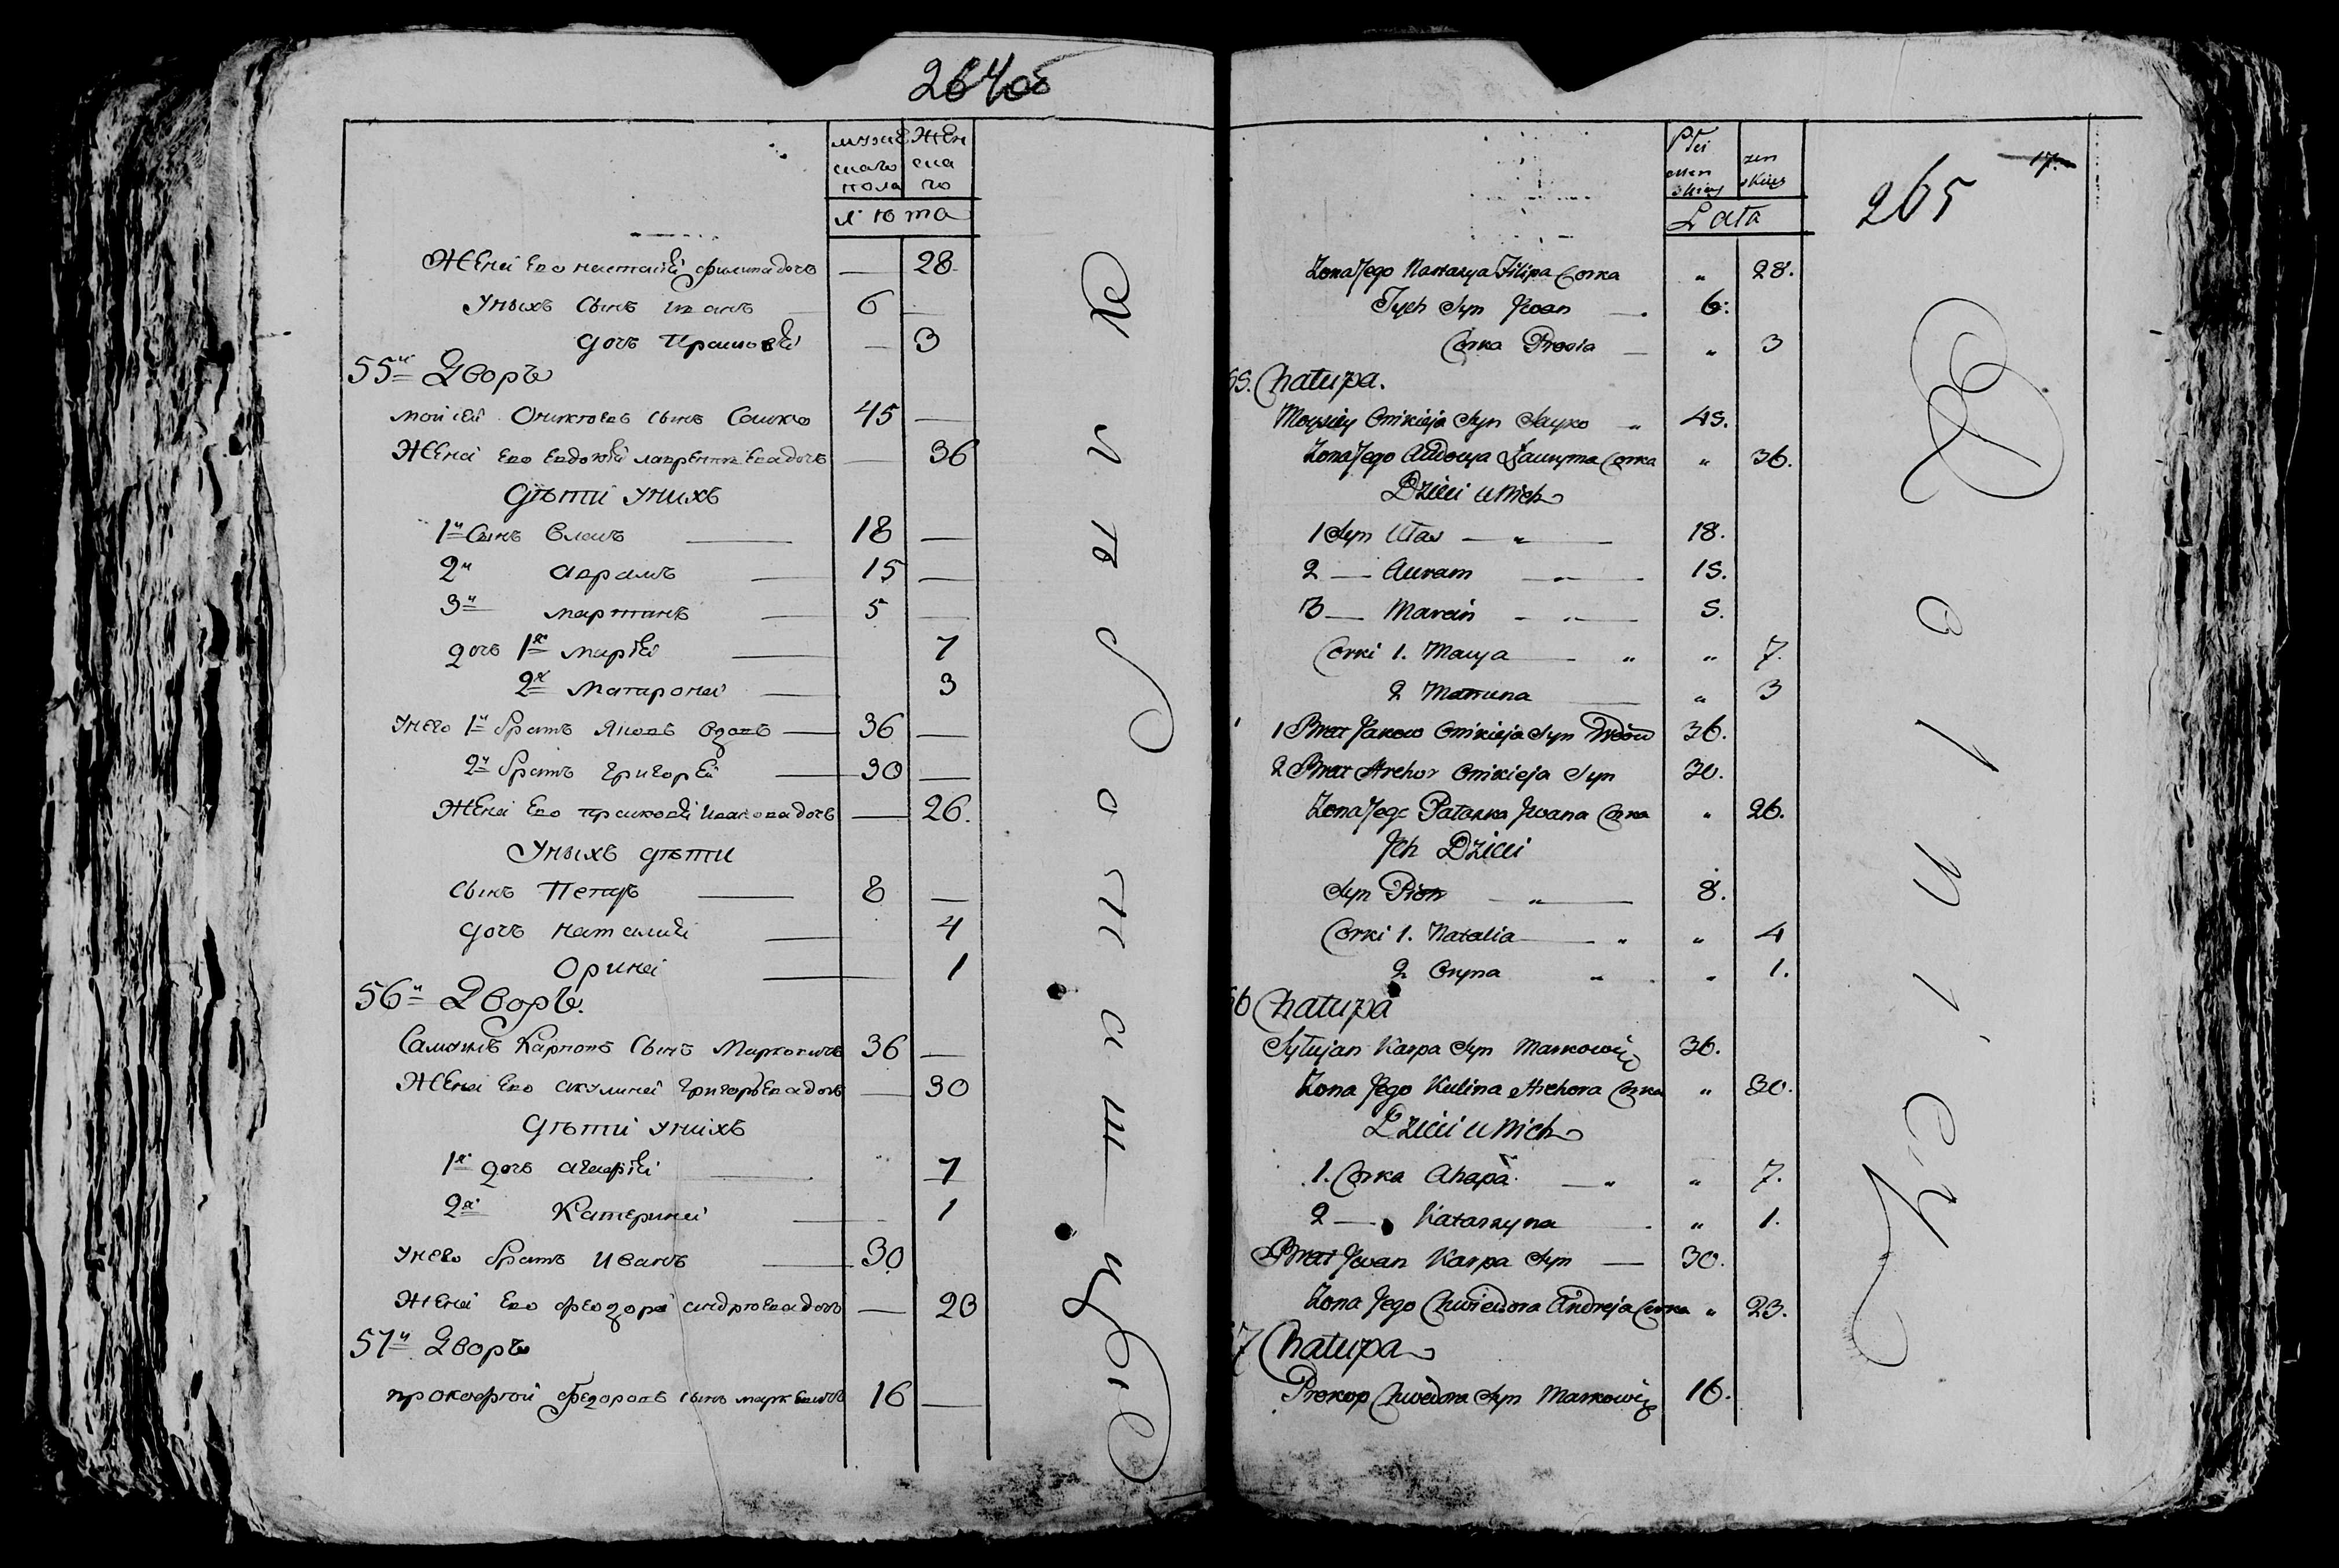 264об
мужескаго пола Женскаго
лѣта
Жена Его настасiя филипа дочь — 28.
Уныхъ Сынъ иванъ 6 —
дочь Прасковiя — 3
55й Дворъ
моисей Оникеевъ сынъ Сайко 45 —
Жена Его Евдокiя лаврентиева дочь — 36
Дѣти унихъ
1й Сынъ Власъ — 18 —
2й аврамъ — 15 —
3й мартинъ — 5 —
дочь 1я марiя — 7
2я матрона — 3
Унего 1й братъ Яковъ вдовъ — 36 —
2й братъ григорей — 30 —
Жена Его прасковiя иванова дочь — 26.
Уныхъ дѣти
сынъ Петръ — 8 —
дочь наталия — 4
Орина — 1
56й Дворъ.
Карповъ Сынъ Марковичъ 36 —
Жена Его акулина григорьева дочь — 30
Дѣти унихъ
1я дочь агафiя — 7
2я Катерина — 1
унего братъ Иванъ — 30
Жена Его феодора андреева дочь — 23
57й Дворъ
прокофий федоровъ сынъ марковичъ 16 —
Płci męskiey żenskiey
Lata
265
17.
Zona Jego Nastazya Filipa Corka „ 28.
Tych Syn Jwan — 6.
Corka Prosia — „ 3
55. Chałupa.
Moysiey Onikieja Syn Sayko „ 45.
Zona Jego Audocya Ławryna Corka „ 36.
Dzieci u Nich
1 Syn Ułas — „ — 18.
2 — Auram — „ — 15.
3 — Marcin — „ — 5.
Corki 1. Marya — „ „ 7.
2 Matruna — „ 3
1 Brat Jakow Onikieja Syn Wdow 36.
2 Brat Hrehor Onikieja Syn 30.
Zona Jego Jwana Corka „ 26.
Jch Dzieci
Syn Piotr — „ — 8.
Corki 1. Natalia — „ „ 4
2 Oryna „ „ 1.
56 Chałupa
Karpa Syn Markowicz 36.
Zona Jego Kulina Hrehora Corka „ 30.
Dzieci u Nich
1. Corka Ahapa — „ „ 7.
2 — Katarzyna — „ 1.
Brat Jwan Karpa Syn — 30.
Zona Jego Chwiedora Andreja Corka „ 23.
57 Chałupa
Prokop Chwedora Syn Markowicz 16.